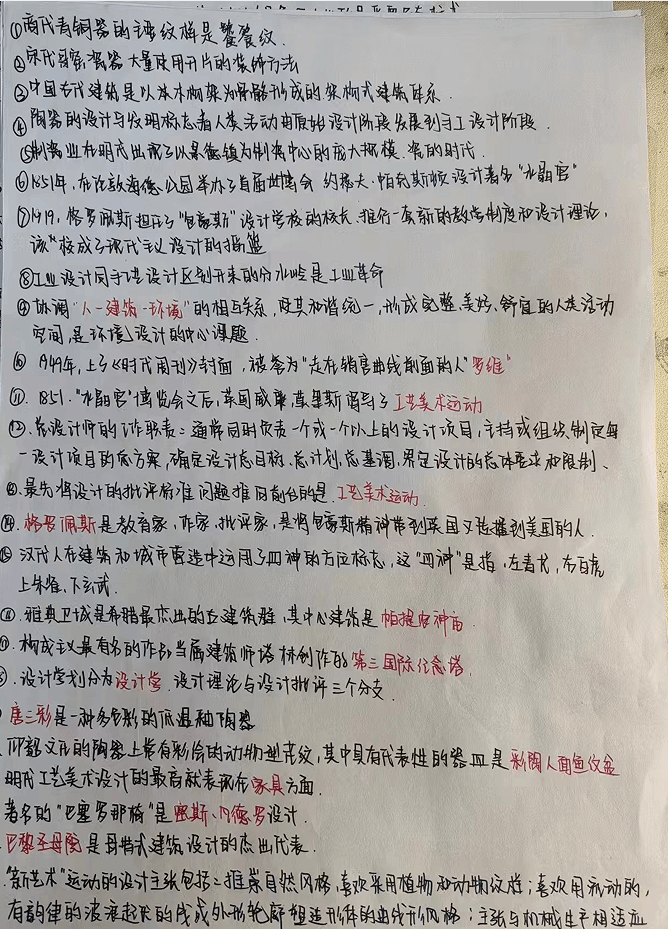 ①商代青铜器的主要纹样是饕餮纹.
②宋代哥窑瓷器大量使用开片的装饰方法
③中国古代建筑是以木构架为骨骼形成的架构式建筑体系.
④陶器的设计与发明标志着人类活动由原始设计阶段发展到手工设计阶段.
⑤制瓷业在明代出现了以景德镇为制瓷中心的庞大规模.瓷的时代.
⑥1851年,在伦敦海德公园举办了首届世博会 约瑟夫·帕克斯顿设计著名"水晶宫"
⑦1919,格罗佩斯担任了"包豪斯"设计学校的校长,推行一套新的教学制度和设计理论,
该"校成了现代主义设计的摇篮
⑧工业设计同手工艺设计区别开来的分水岭是工业革命
⑨协调"人—建筑—环境"的相互关系,使其和谐统一,形成完整、美好、舒宜的人类活动
空间,是环境设计的中心课题.
⑩1949年,上了《时代周刊》封面,被誉为"走在销售曲线前面的人"罗维"
⑪.1851."水晶宫"博览会之后,英国威廉,莫里斯倡导了工艺美术运动
⑫.总设计师的工作职责:通常同时负责一个或一个以上的设计项目,主持或组织制定每
一设计项目的总方案,确定设计总目标、总计划、总基调,界定设计的总体要求和限制、
⑬.最先将设计的批评标准问题推向前台的是.工艺美术运动.
⑭.格罗佩斯是教育家,作家,批评家,是将包豪斯精神带到英国又传播到美国的人.
⑮汉代人在建筑和城市营造中运用了四神的方位标志,这"四神"是指,左青龙,右白虎
上朱雀,下玄武.
⑯.雅典卫城是希腊最杰出的古建筑群,其中心建筑是帕提农神庙.
构成主义最有名的作品当属建筑师塔林创作的第三国际纪念塔.
.设计学划分为设计学.设计理论与设计批评三个分支.
唐三彩是一种多色彩的低温釉陶器
仰韶文化的陶器上常有彩绘的动物型花纹,其中具有代表性的器皿是彩陶人面鱼纹盆
明代工艺美术设计的最高成就表现在家具方面.
著名的"巴塞罗那椅"是密斯、凡德罗设计.
巴黎圣母院是哥特式建筑设计的杰出代表.
"新艺术"运动的设计主张包括:推崇自然风格,喜欢采用植物和动物纹样;喜欢用流动的,
有韵律的波浪起伏的线或外形轮廓塑造形体的曲线形风格;主张与机械生产相适应